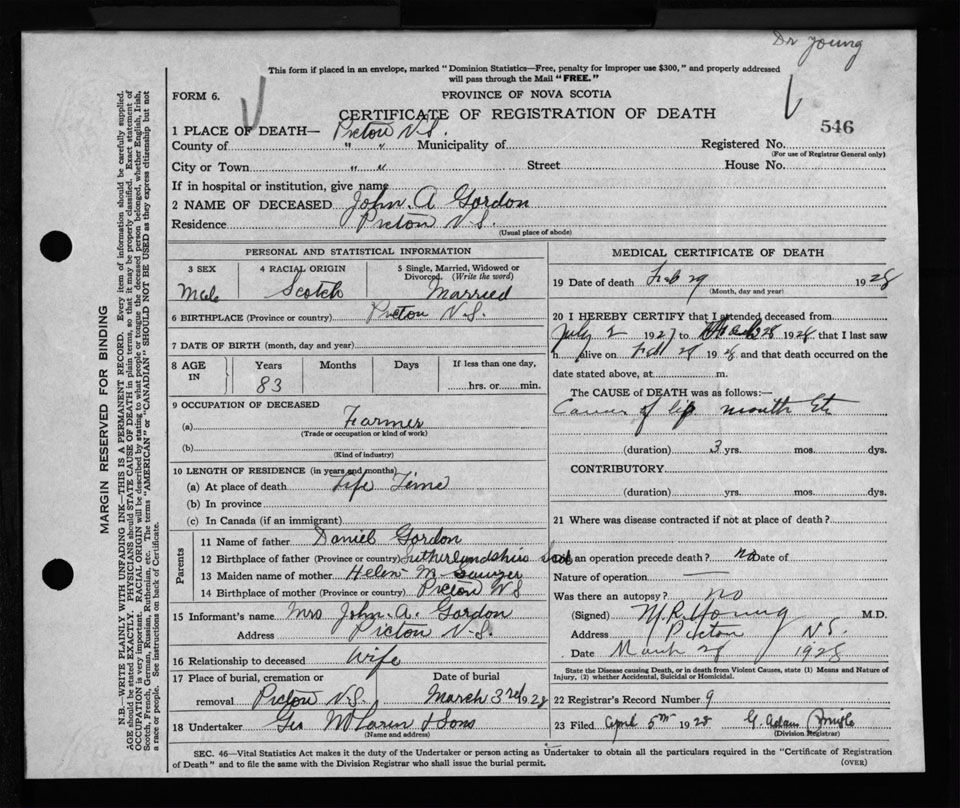 Dr Young
This form if placed in an envelope, marked "Dominion Statistics—Free, penalty for improper use $300," and properly addressed
will pass through the Mail "FREE."
FORM 6.
PROVINCE OF NOVA SCOTIA
CERTIFICATE OF REGISTRATION OF DEATH
546
1 PLACE OF DEATH— Pictou N.S.
County of " " Municipality of Registered No.
(For use of Registrar General only)
City or Town " " Street House No.
If in hospital or institution, give name
2 NAME OF DECEASED John. A Gordon
Residence Pictou N.S.
(Usual place of abode)
PERSONAL AND STATISTICAL INFORMATION
3 SEX
4 RACIAL ORIGIN
5 Single, Married, Widowed or
Divorced. (Write the word)
Male Scotch Married
6 BIRTHPLACE (Province or country) Pictou N.S.
7 DATE OF BIRTH (month, day and year)
8 AGE
IN
Years Months Days If less than one day,
83 hrs. or min.
9 OCCUPATION OF DECEASED
(a) Farmer
(Trade or occupation or kind of work)
(b)
(Kind of industry)
10 LENGTH OF RESIDENCE (in years and months)
(a) At place of death Life Time
(b) In province
(c) In Canada (if an immigrant)
Parents
11 Name of father Daniel Gordon
12 Birthplace of father (Province or country) Sutherlandshire Scot
13 Maiden name of mother Helen M
14 Birthplace of mother (Province or country) Pictou N S
15 Informant's name Mrs John. A. Gordon
Address Pictou N.S.
16 Relationship to deceased Wife
17 Place of burial, cremation or Date of burial
removal Pictou N.S. March 3rd 1928
18 Undertaker Geo McLaren & Sons
(Name and address)
MEDICAL CERTIFICATE OF DEATH
19 Date of death Feb 29 1928
(Month, day and year)
20 I HEREBY CERTIFY that I attended deceased from
July 2 1927 to 1928, that I last saw
h alive on Feb 28 1928, and that death occurred on the
date stated above, at m.
The CAUSE OF DEATH was as follows:—
Cancer of lip mouth Etc
(duration) 3 yrs. mos. dys.
CONTRIBUTORY
(duration) yrs. mos. dys.
21 Where was disease contracted if not at place of death?
an operation precede death? no Date of
Nature of operation —
Was there an autopsy? no
(Signed) M.R. Young M.D.
Address Pictou N.S.
Date March 28 1928
State the Disease causing Death, or in death from Violent Causes, state (1) Means and Nature of
Injury, (2) whether Accidental, Suicidal or Homicidal.
22 Registrar's Record Number 9
23 Filed April 5th 1928 G. Adam
(Division Registrar)
SEC. 46—Vital Statistics Act makes it the duty of the Undertaker or person acting as Undertaker to obtain all the particulars required in the "Certificate of Registration
of Death" and to file the same with the Division Registrar who shall issue the burial permit.
(OVER)
MARGIN RESERVED FOR BINDING
N.B.—WRITE PLAINLY WITH UNFADING INK—THIS IS A PERMANENT RECORD. Every item of information should be carefully supplied.
AGE should be stated EXACTLY. PHYSICIANS should STATE CAUSE OF DEATH in plain terms, so that it may be properly classified. Exact statement of
OCCUPATION is very important. RACIAL ORIGIN will be described by stating to what people or tongue the deceased person belonged, whether English, Irish,
Scotch, French, German, Russian, Ruthenian, etc. The terms "AMERICAN" or "CANADIAN" SHOULD NOT BE USED as they express citizenship but not
a race or people. See instructions on back of Certificate.